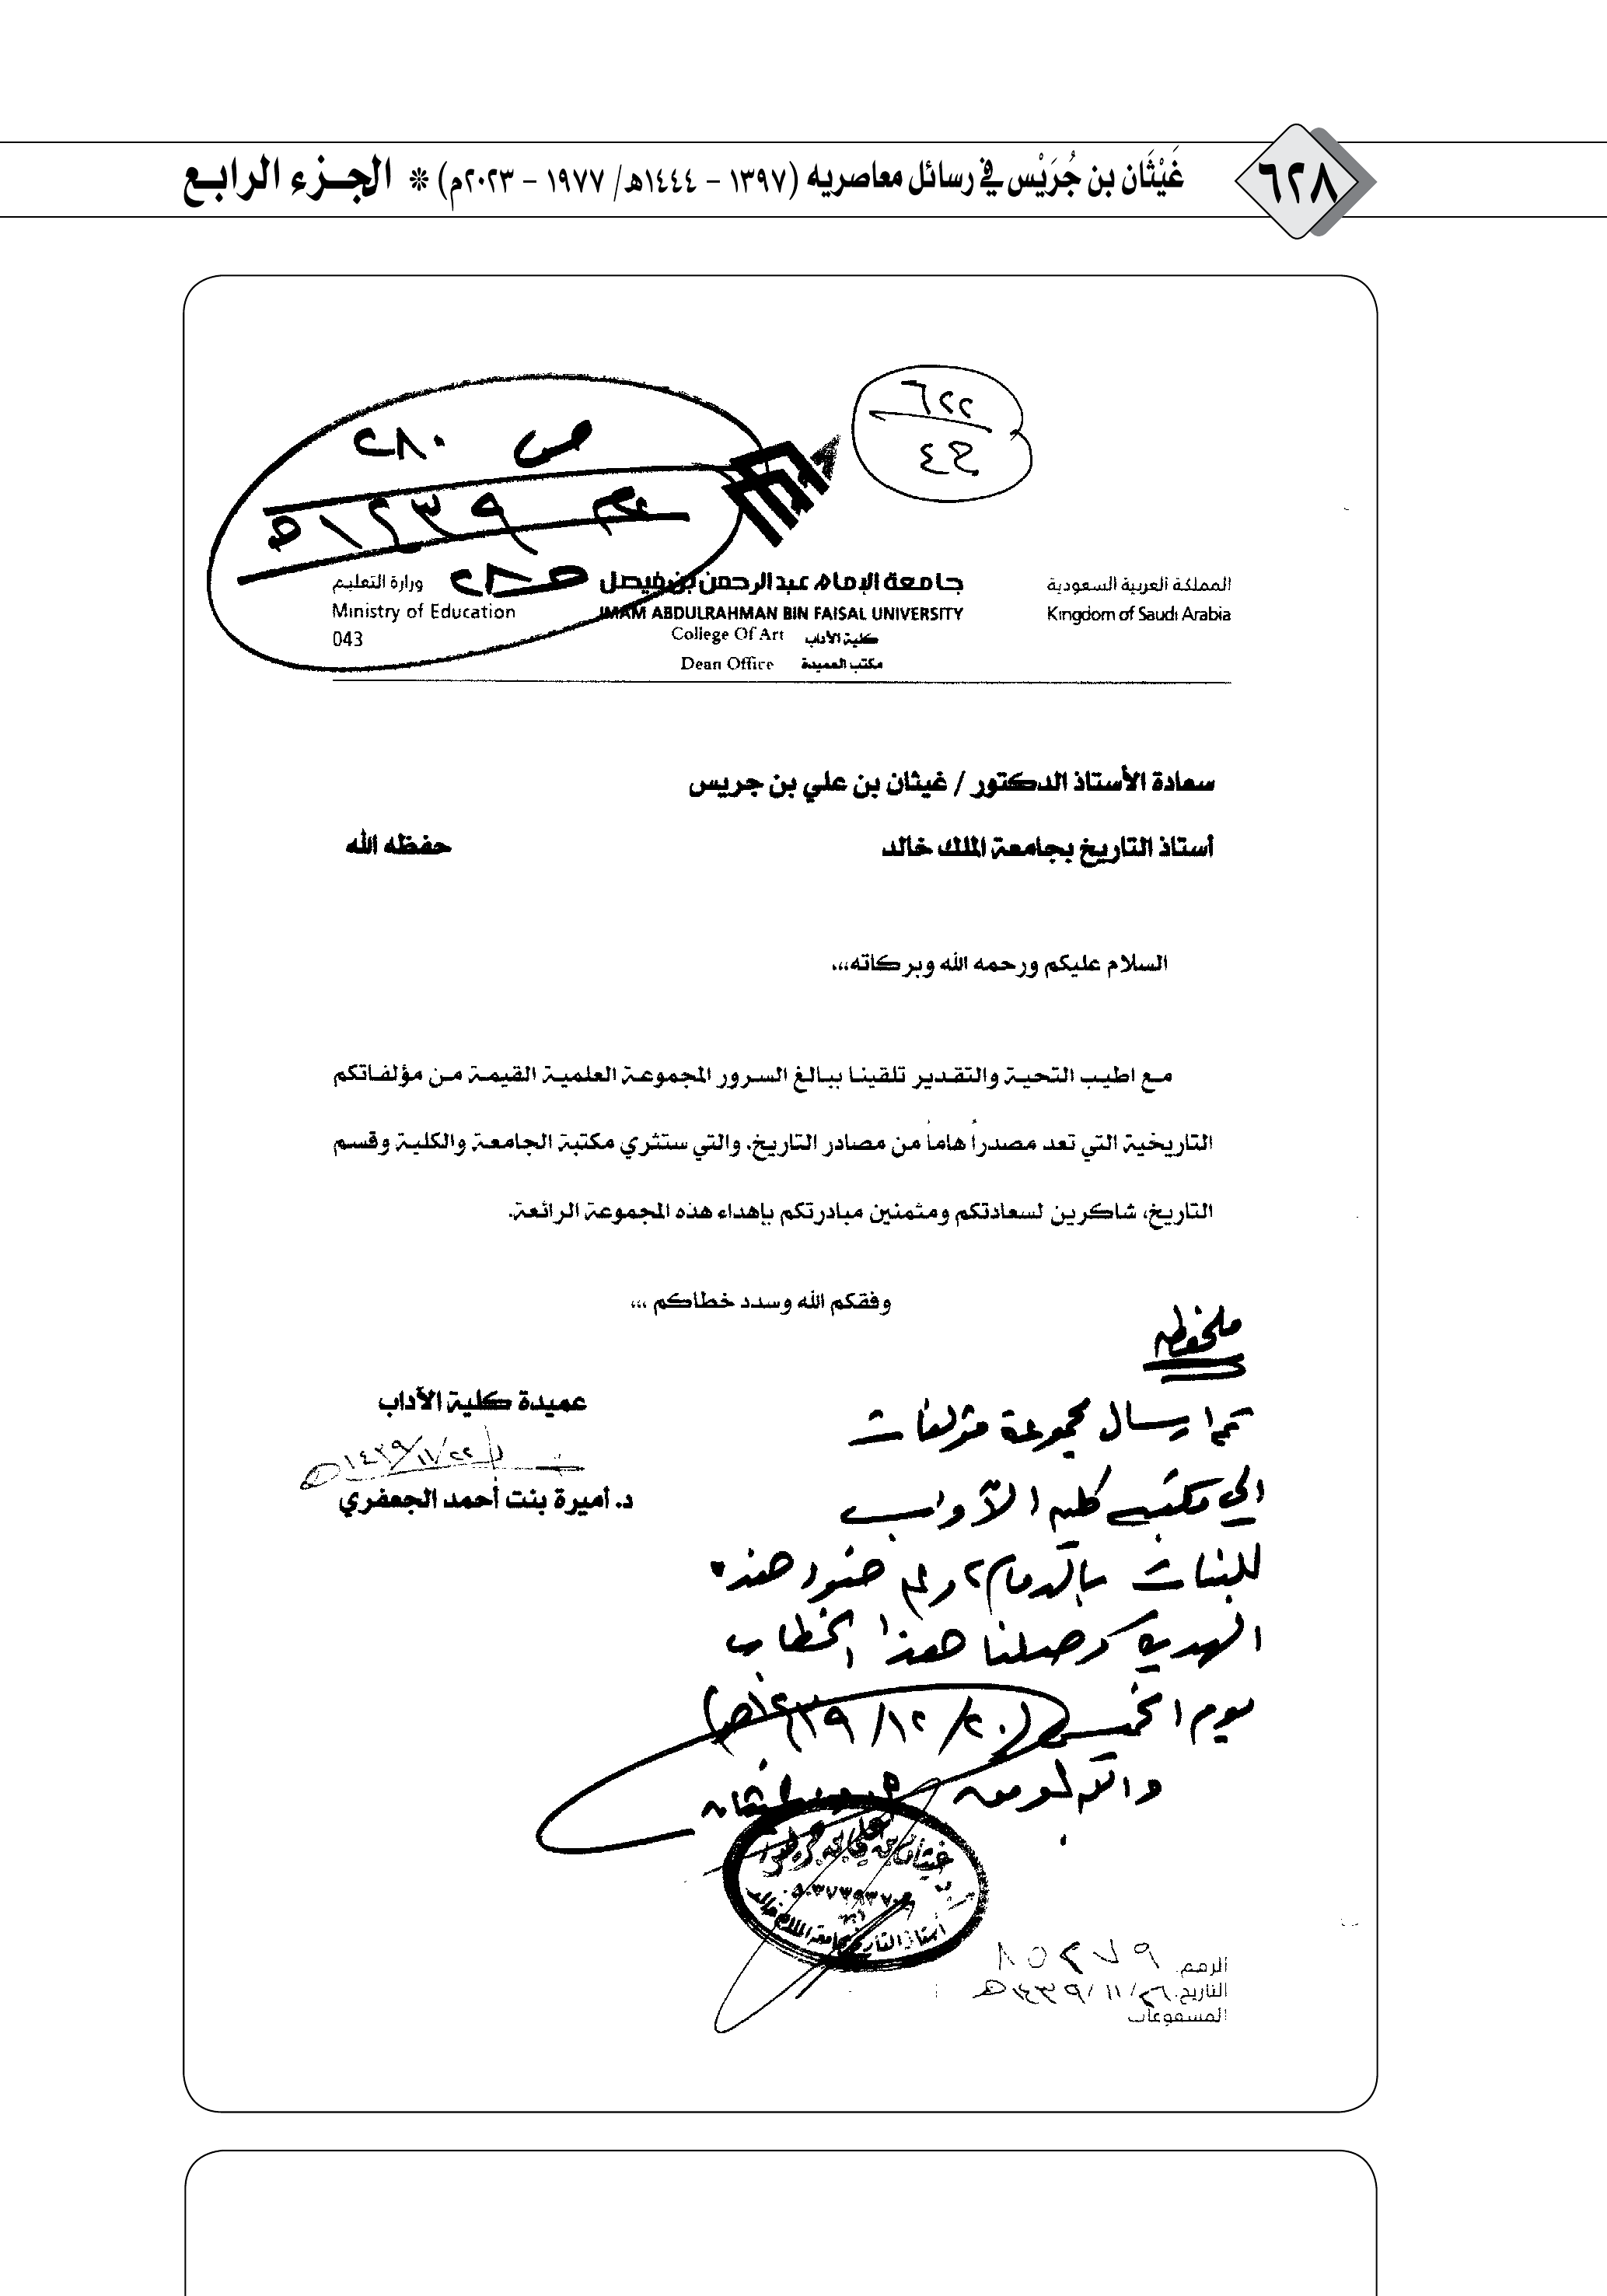 ٦٢٨
غَيْثَان بن جُرَيْس في رسائل معاصريه (١٣٩٧ - ١٤٤٤هـ/ ١٩٧٧ - ٢٠٢٣م) * الجزء الرابع
٦٢٢
ج٤
ص ٢٨٠
المملكة العربية السعودية
Kingdom of Saudi Arabia
جامعة الإمام عبدالرحمن بن فيصل
IMAM ABDULRAHMAN BIN FAISAL UNIVERSITY
College Of Art كلية الآداب
Dean Office مكتب العميدة
وزارة التعليم
Ministry of Education
043
سعادة الأستاذ الدكتور / غيثان بن علي بن جريس
أستاذ التاريخ بجامعة الملك خالد حفظه الله
السلام عليكم ورحمه الله وبركاته،،،
مع اطيب التحية والتقدير تلقينا ببالغ السرور المجموعة العلمية القيمة من مؤلفاتكم
التاريخية التي تعد مصدراً هاماً من مصادر التاريخ، والتي ستثري مكتبة الجامعة والكلية وقسم
التاريخ، شاكرين لسعادتكم ومثمنين مبادرتكم بإهداء هذه المجموعة الرائعة.
وفقكم الله وسدد خطاكم ،،،
عميدة كلية الآداب
١٤٣٩/١١/٢٢هـ
د. أميرة بنت أحمد الجعفري
ملحوظه
تم ارسال مجموعة مؤلفات
الي مكتبة كلية الآداب
للبنات بالدمام هذه
الهدية وصلنا هذا الخطاب
يوم الخميس (٢٠/ ١٢/ ١٤٣٩هـ)
والله الموفق
غيثان بن علي بن جريس
أستاذ التاريخ بجامعة الملك خالد
الرقم. ٨٥٢٧٩
التاريخ. ٢٦/ ١١/ ١٤٣٩هـ
المشفوعات